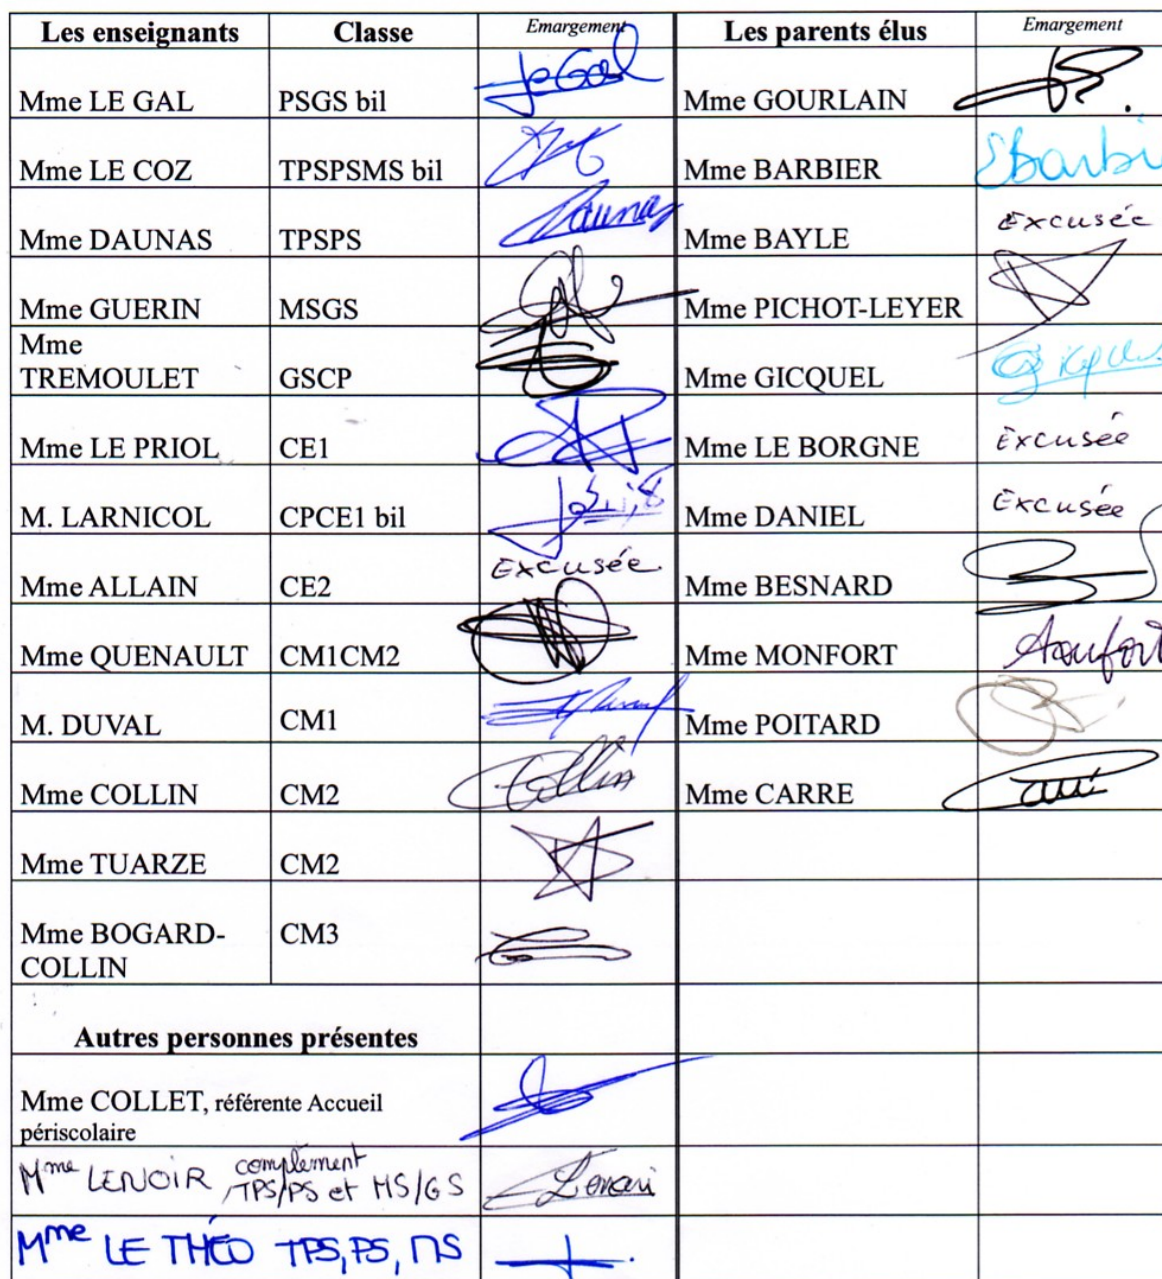 Les enseignants Classe Emargement Les parents élus Emargement
Mme LE GAL PSGS bil Le Gal Mme GOURLAIN
Mme LE COZ TPSPSMS bil Mme BARBIER Barbi
Mme DAUNAS TPSPS Daunas Mme BAYLE Excusée
Mme GUERIN MSGS Mme PICHOT-LEYER
Mme
TREMOULET GSCP Mme GICQUEL
Mme LE PRIOL CE1 Mme LE BORGNE Excusée
M. LARNICOL CPCE1 bil Mme DANIEL Excusée
Mme ALLAIN CE2 Excusée Mme BESNARD
Mme QUENAULT CM1CM2 Mme MONFORT
M. DUVAL CM1 Mme POITARD
Mme COLLIN CM2 Collin Mme CARRE
Mme TUARZE CM2
Mme BOGARD- CM3
COLLIN
Autres personnes présentes
Mme COLLET, référente Accueil
périscolaire
Mme LENOIR complément
TPS/PS et MS/GS
Mme LE THÉO TPS, PS, MS